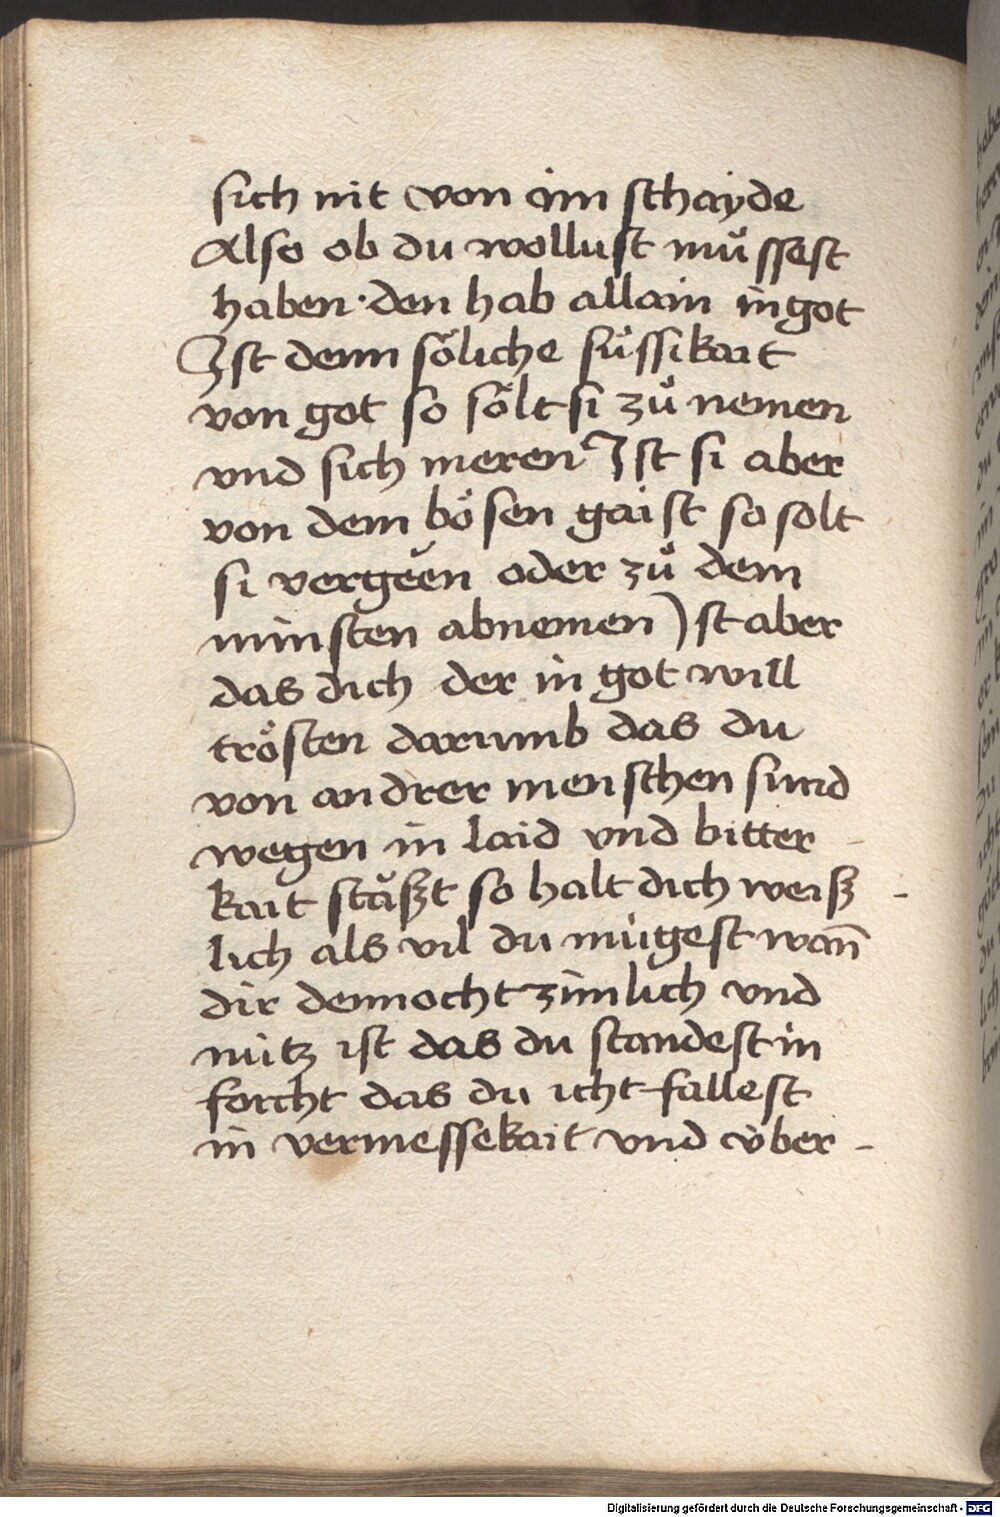 sich nit von im schayde
Also ob du wollust mu̇ssest
haben · den hab allain in got
Ist denn sȯliche su̇ssikait
von got so sȯlt si zů nemen
vnd sich meren Ist si aber
von dem bȯsen gaist so solt
si vergeen oder zů dem
minsten abnemen Ist aber
das dich der in got will
trȯsten darumb das du
von andrer menschen sund
wegen in laid vnd bitter
kait staͤßt so halt dich weiß
lich als vil du mu̇gest wan̄
dir dennocht zimlich vnd
nütz ist das du standest in
forcht das du icht fallest
in vermessekait vnd v̇ber